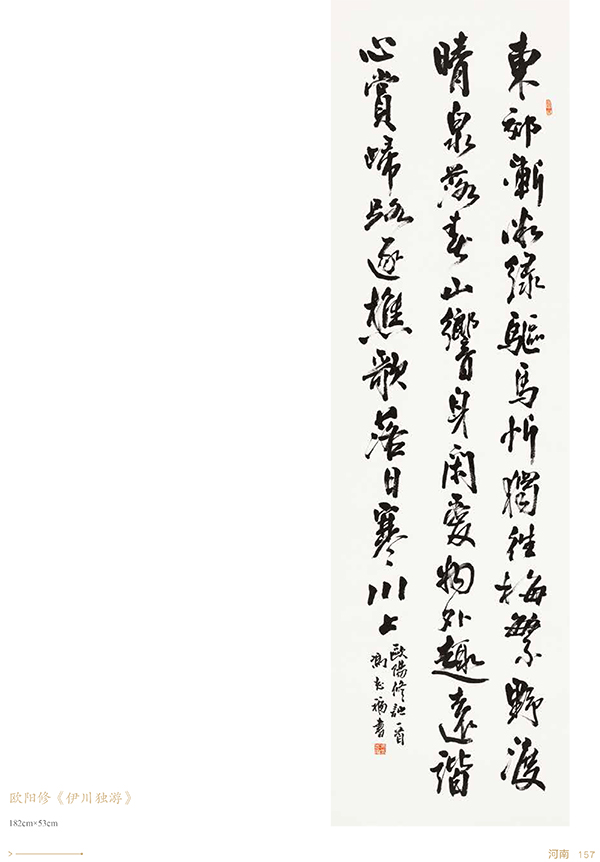 東郊漸微綠驅馬忻獨往梅繁野渡
晴泉落春山響身閑愛物外趣遠諧
心賞歸路逐樵歌落日寒川上
歐陽修詩一首
書
欧阳修《伊川独游》
182cm×53cm
河南 157